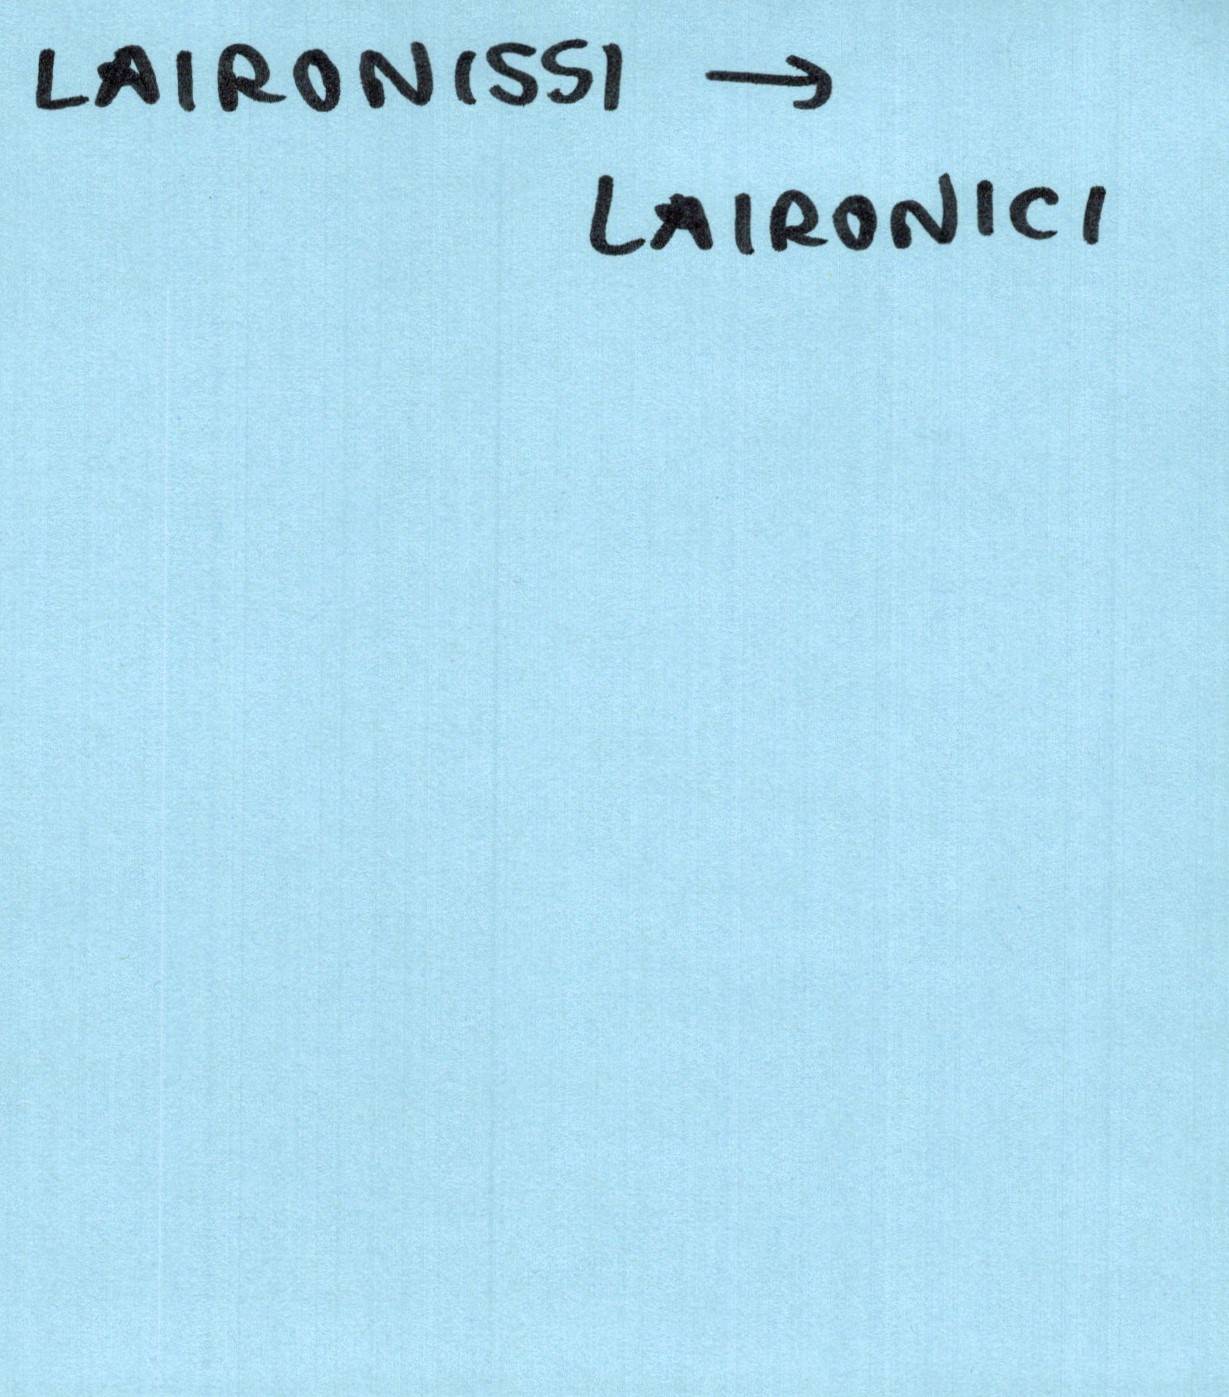 LAIRONISSI →
LAIRONICI